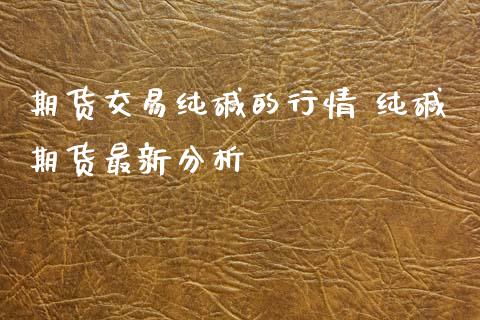 期货交易纯碱的行情 纯碱
期货最新分析